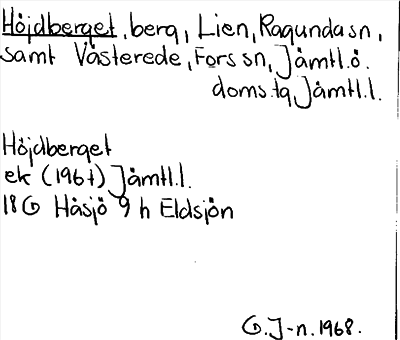 Höjdberget, berg, Lien, Ragunda sn,
samt Västerede, Fors sn, Jämtl.ö.
doms.tg Jämtl.l.
Höjdberget
ek (1961) Jämtl.l.
18G Håsjö 9 h Eldsjön
G. J-n. 1968.